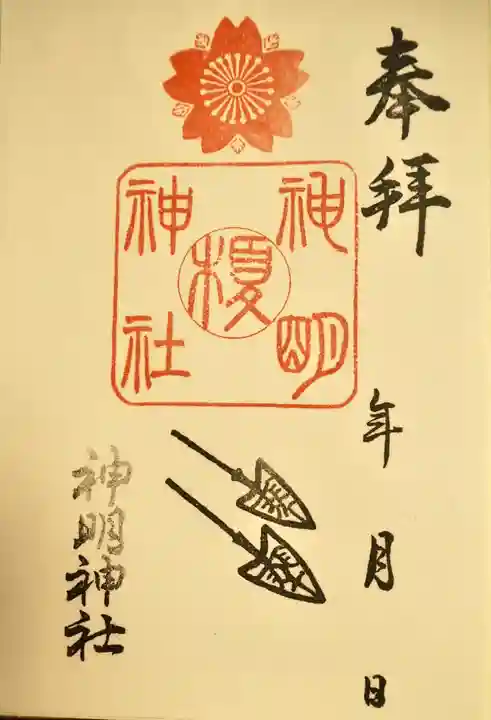 奉拝
年月日
神明
榎
神社
神明神社